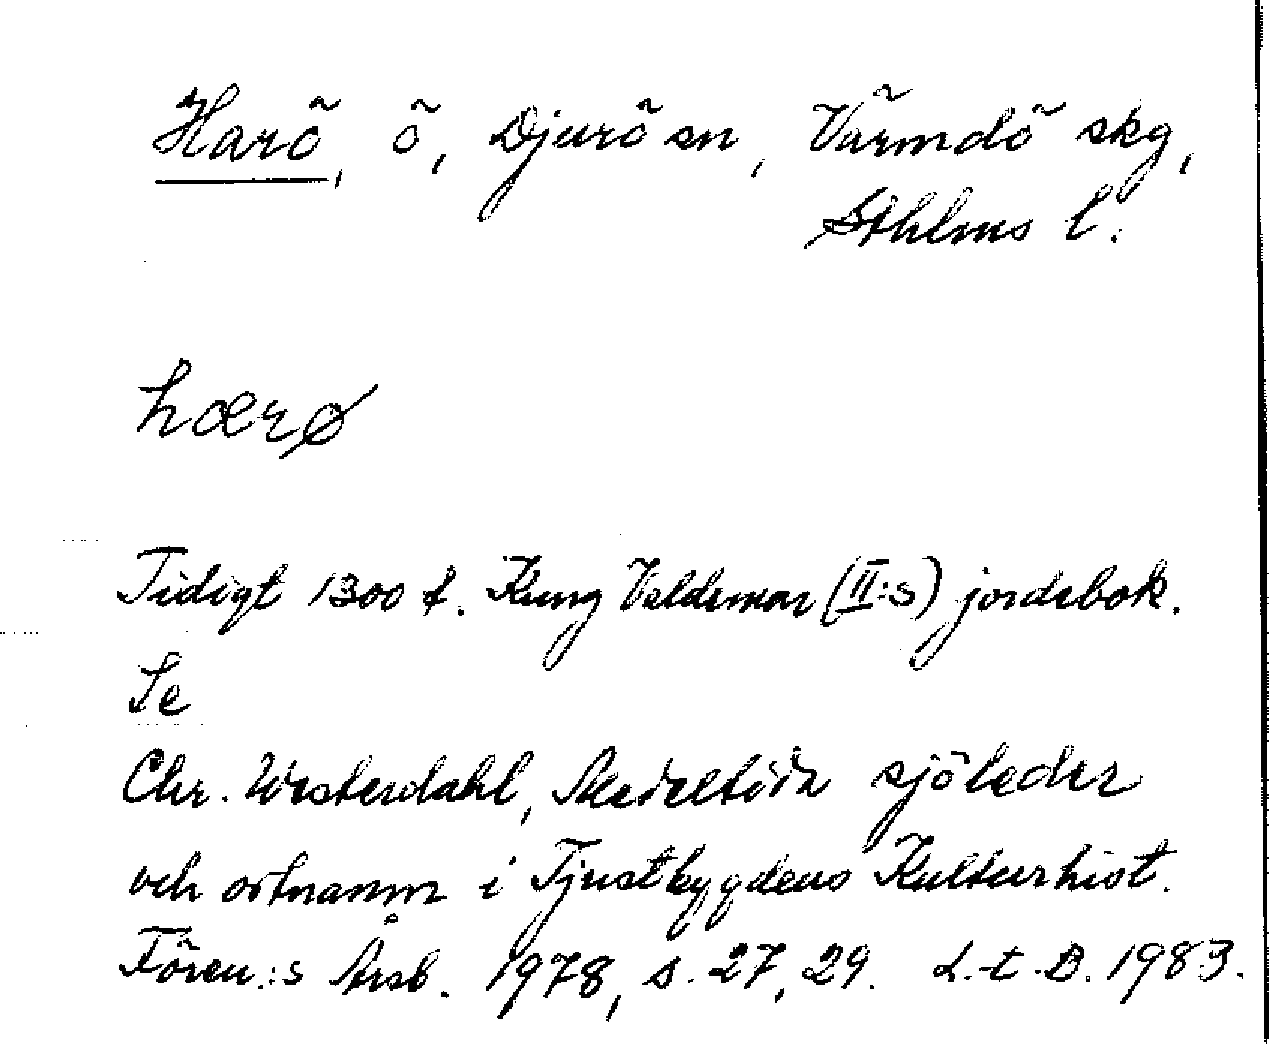 Harö, ö, Djurö sn, Värmdö skg,
Sthlms l.
hærø
Tidigt 1300 t. Kung Valdemar (II:s) jordebok.
Se
Chr. Westerdahl, Medeltida sjöleder
och ortnamn i Tjustbygdens Kulturhist.
Fören.:s Årsb. 1978, s. 27, 29. L.-t. D. 1983.